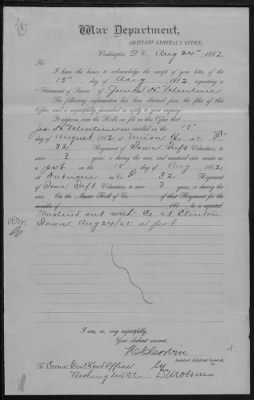 War Department,
ADJUTANT GENERAL'S OFFICE,
Washington, D. C., Aug 24th, 1882
Sir:
I have the honor to acknowledge the receipt of your letter of the
15th day of Aug 1882, requesting a
Statement of Service of James H. Valentine
The following information has been obtained from the files of this
Office, and is respectfully furnished in reply to your inquiry:
It appears from the Rolls on file in this Office that
Jas H. Valentine was enrolled on the 15th
day of August 1862 at
32 Regiment of Iowa Inft Volunteers, to
serve 3 years, or during the war, and mustered into service as
a pvt on the 15 day of Aug 1862
at Dubuque 32 Regiment
of Iowa Inft Volunteers, to serve 3 years, or during the
war. On the Muster Roll of Co. of that Regiment, for the
months of 186 , he is reported
Mustered out with Co at Clinton
Iowa Aug 24/65 a pvt
I am, sir, very respectfully,
Your obedient servant,
Assistant Adjutant General.
Washington DC